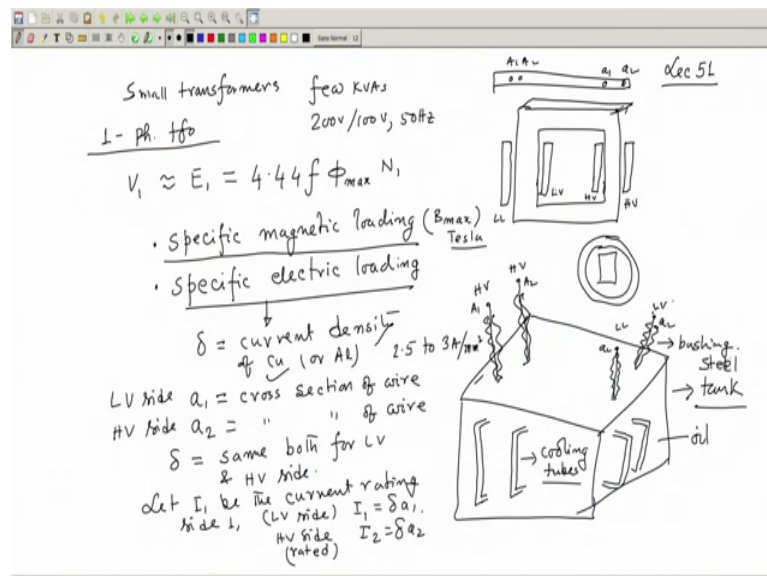 Sans Normal 12
Lec 51
A1 A2
a1 a2
Small transformers few KVAs
200V/100V, 50Hz
1-ph. tfo
V1 ≈ E1 = 4.44 f Φmax N1
LV HV
LL HV
• specific magnetic loading (Bmax)
Tesla
• specific electric loading
δ = current density
of Cu (or Al) 2.5 to 3A/mm²
LV side a1 = cross section of wire
HV side a2 = " " of wire
δ = same both for LV
& HV side.
Let I1 be the current rating
side 1, (LV side) I1 = δa1.
HV side I2 = δa2
(rated)
HV HV
A1 A2
LL LV
a2 a2
→ bushing.
steel
→ tank
oil
→ cooling
tubes